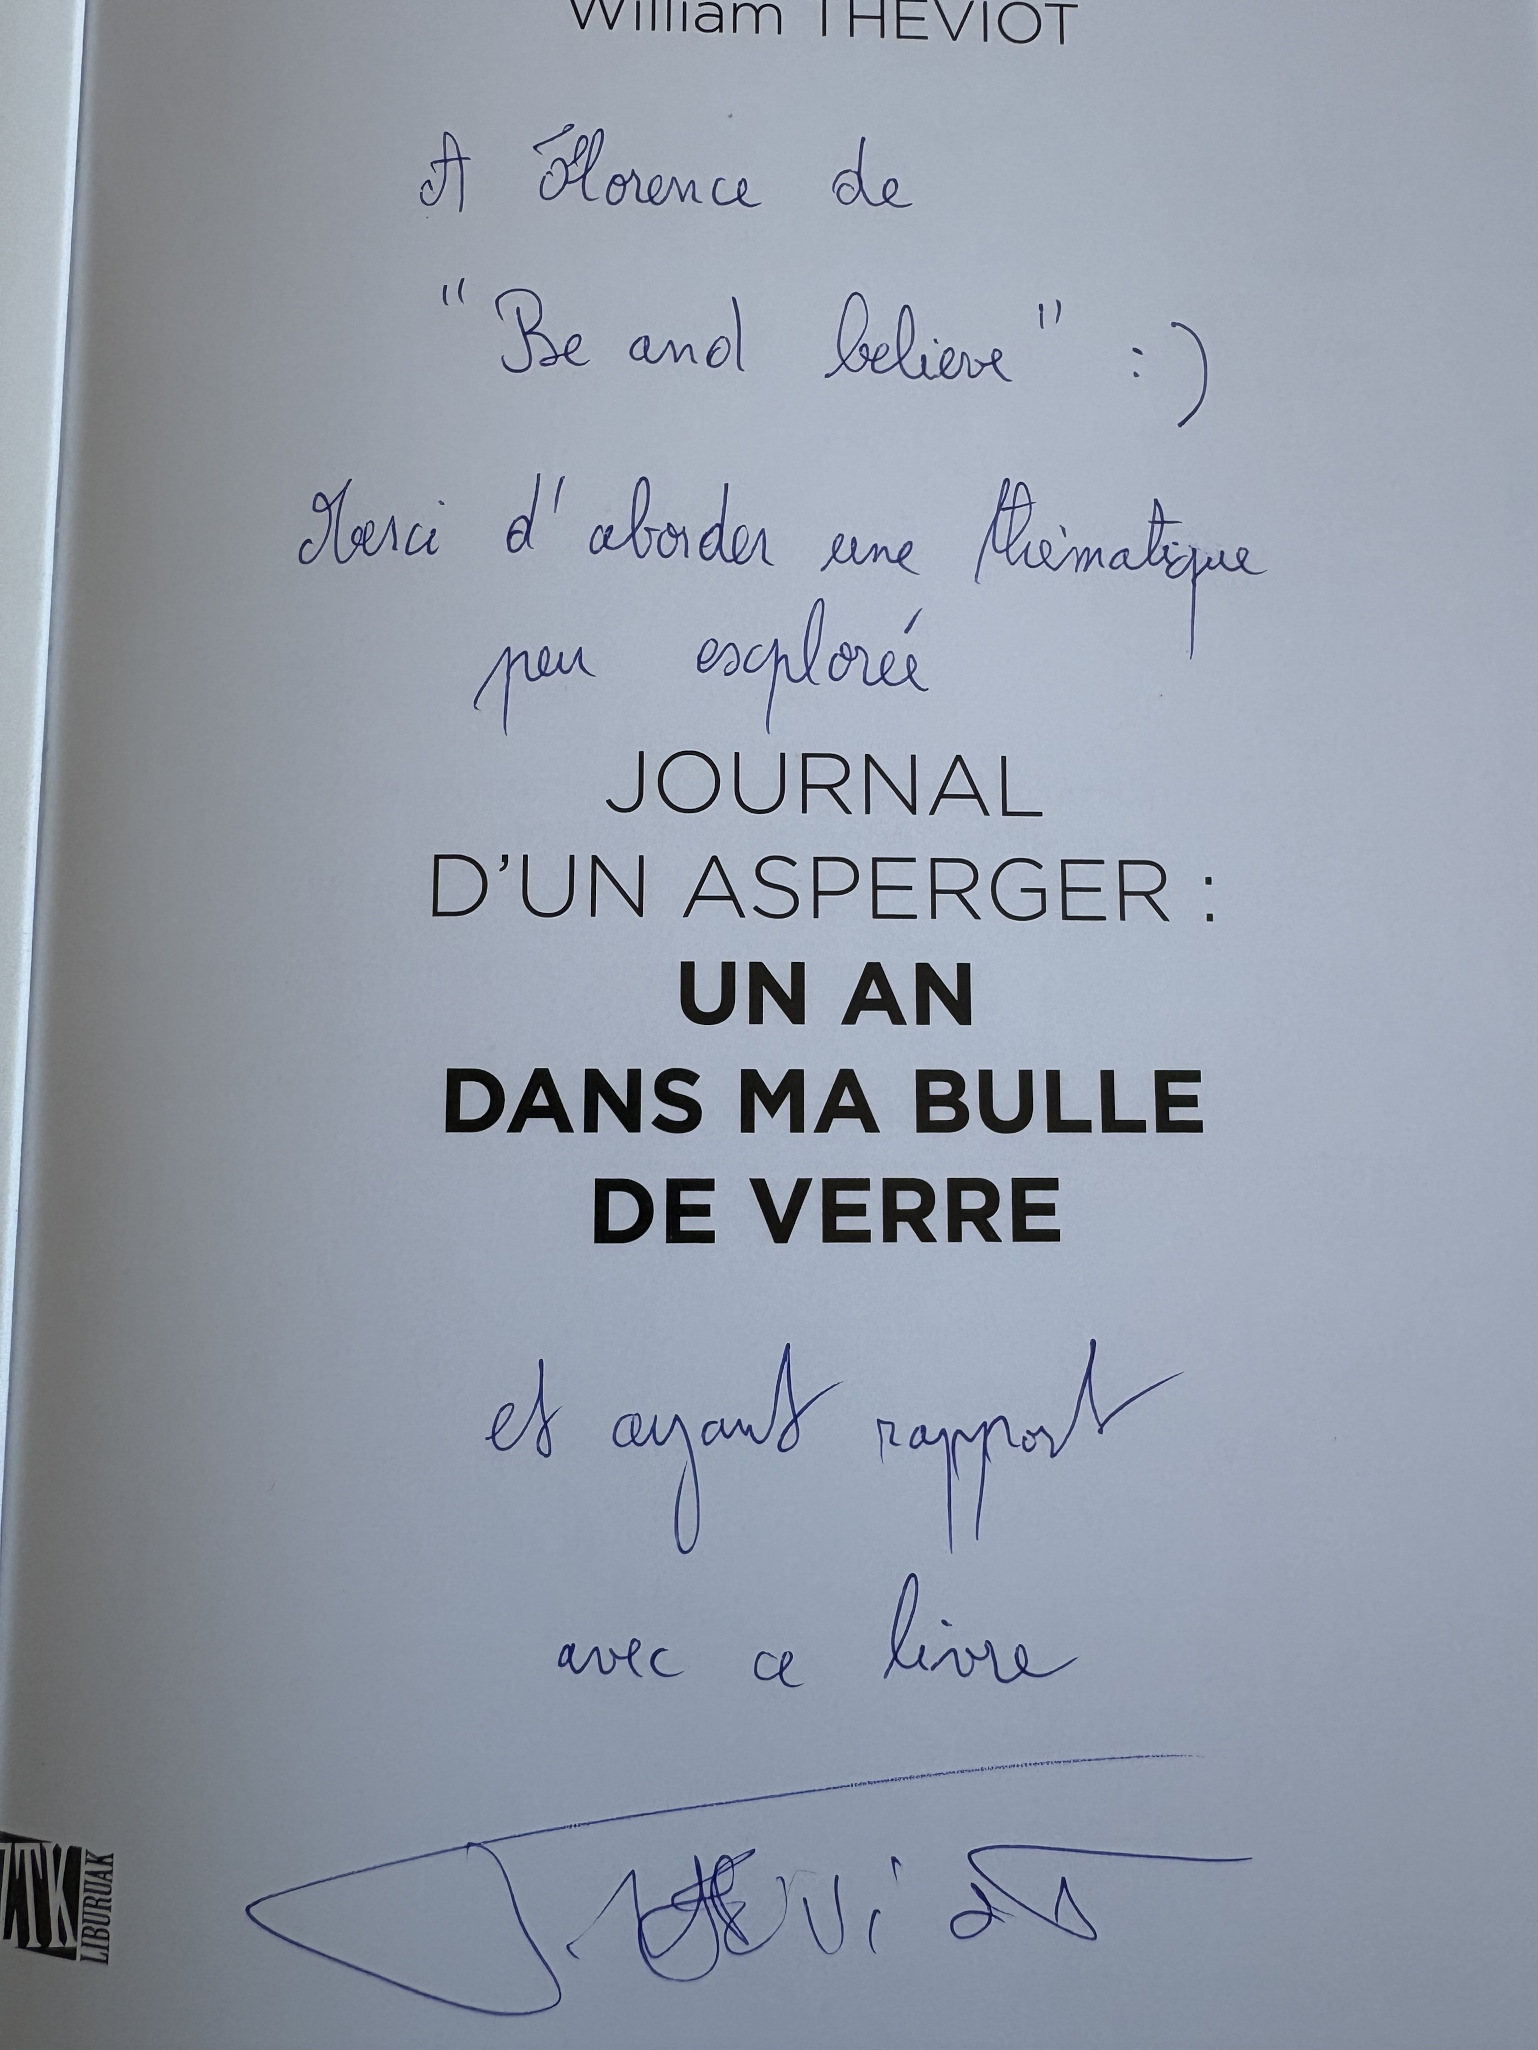 William THEVIOT
A Florence de
"Be and believe" :)
Merci d'aborder une thématique
peu explorée
JOURNAL
D'UN ASPERGER :
UN AN
DANS MA BULLE
DE VERRE
et ayant rapport
avec ce livre
THEViOT
LIBURUAK